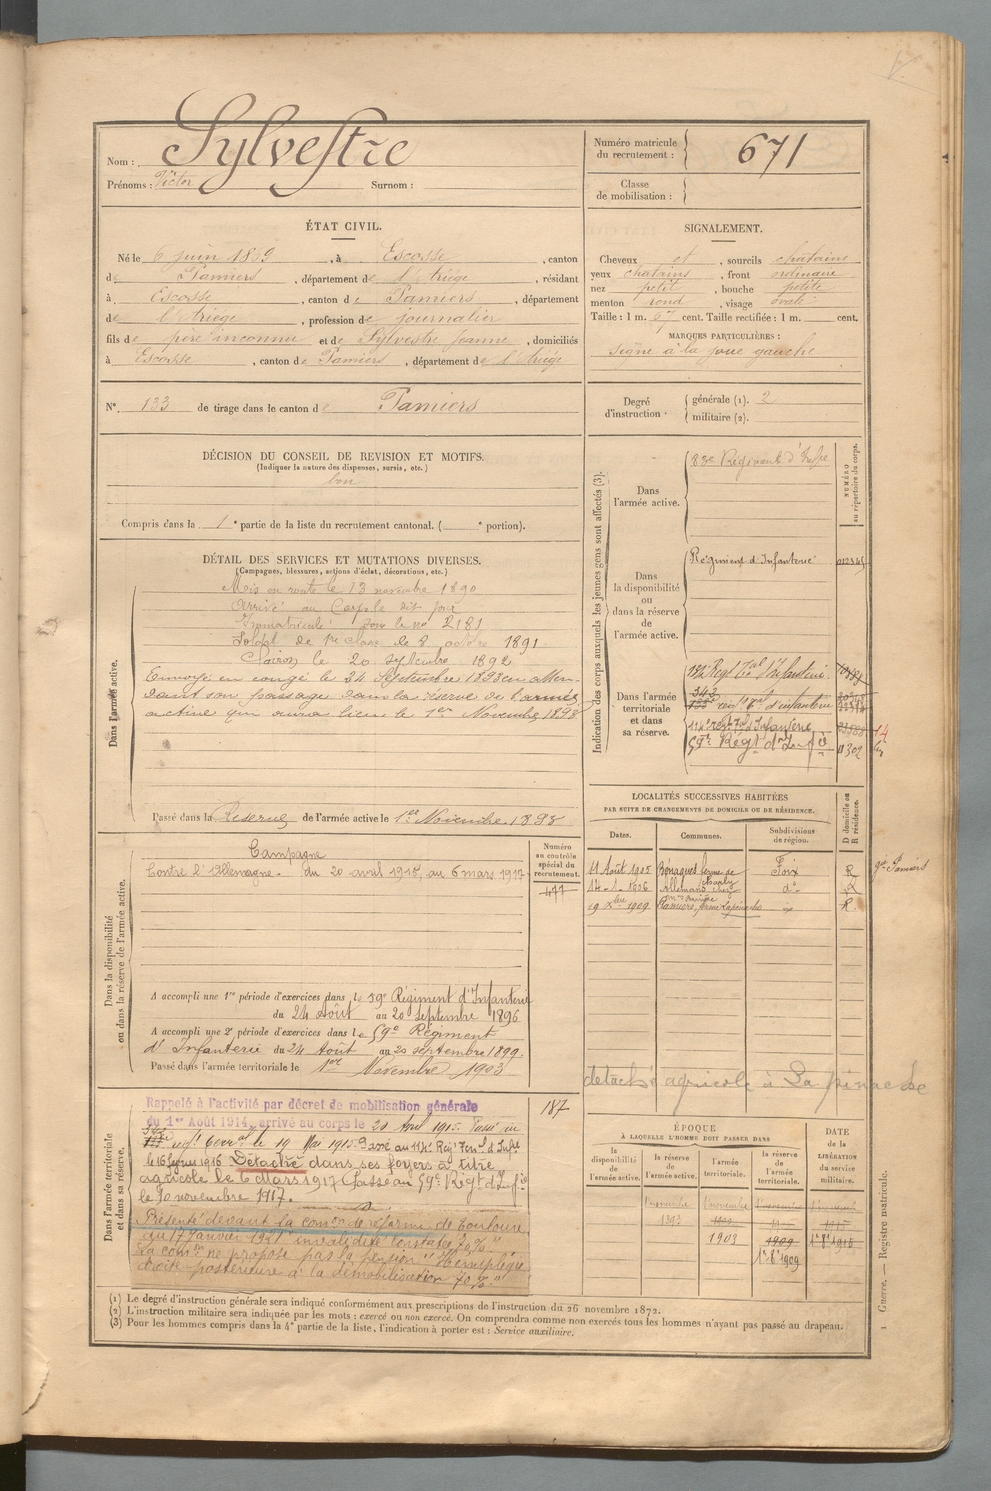 Nom : Sylvestre
Prénoms : Victor Surnom :
Numéro matricule du recrutement : 671
Classe de mobilisation :
ÉTAT CIVIL.
Né le 6 juin 1869, à Escosse, canton
de Pamiers, département de l'Ariège, résidant
à Escosse, canton de Pamiers, département
de l'Ariège, profession de journalier
fils de père inconnu et de Sylvestre Jeanne, domiciliés
à Escosse, canton de Pamiers, département de l'Ariège
N° 133 de tirage dans le canton de Pamiers
SIGNALEMENT.
Cheveux et, sourcils chatains
yeux chatains, front ordinaire
nez petit, bouche petite
menton rond, visage ovale
Taille : 1 m. 67 cent. Taille rectifiée : 1 m. cent.
MARQUES PARTICULIÈRES :
Signe à la joue gauche
Degré d'instruction : générale (1). 2
militaire (2).
DÉCISION DU CONSEIL DE REVISION ET MOTIFS.
(Indiquer la nature des dispenses, sursis, etc.)
bon
Compris dans la 1e partie de la liste du recrutement cantonal. ( e portion).
DÉTAIL DES SERVICES ET MUTATIONS DIVERSES.
(Campagnes, blessures, actions d'éclat, décorations, etc.)
Dans l'armée active.
Mis en route le 13 novembre 1890
Arrivé au Corps le dit jour
Immatriculé sous le n° 2181
Soldat de 1re classe le 8 octobre 1891
Clairon le 20 septembre 1892
Envoyé en congé le 24 Septembre 1893 en atten-
dant son passage dans la réserve de l'armée
active qui aura lieu le 1er Novembre 1893
Passé dans la Réserve de l'armée active le 1er Novembre 1893
Indication des corps auxquels les jeunes gens sont affectés (3).
NUMÉRO au répertoire du corps.
Dans l'armée active.
83e Régiment d'Infie
Dans la disponibilité ou dans la réserve de l'armée active.
Régiment d'Infanterie
Dans l'armée territoriale et dans sa réserve.
Regt Tal d'Infanterie
343
135 d'infanterie
114e regt Tal d'Infanterie
59e Régt d'Infie 11302
14
LOCALITÉS SUCCESSIVES HABITÉES
PAR SUITE DE CHANGEMENTS DE DOMICILE OU DE RÉSIDENCE.
Dates. Communes. Subdivisions de région. D domicile ou R résidence.
11 Août 1905 Bénagues ferme de Foix R
14-1-1906 Allemans chez do R
19 Xbre 1909 Pamiers, ferme Lapinache R
gie Pamiers
détaché agricole à La pinache
Dans la disponibilité ou dans la réserve de l'armée active.
Numéro au contrôle spécial du recrutement.
477
Campagne
Contre l'Allemagne. du 20 avril 1915 au 6 mars 1917
A accompli une 1re période d'exercices dans le 59e Régiment d'Infanterie
du 24 Août au 20 septembre 1896
A accompli une 2e période d'exercices dans le 59e Régiment
d'Infanterie du 24 Août au 20 septembre 1899.
Passé dans l'armée territoriale le 1er Novembre 1903
Dans l'armée territoriale et dans sa réserve.
187
Rappelé à l'activité par décret de mobilisation générale
du 1er Août 1914, arrivé au corps le 20 Avril 1915. Passé au
343
135 regt terral le 19 Mai 1915 Passé au 114e Régt Terral d'Infie
le 16 1916 Détaché dans ses foyers à titre
agricole le 6 Mars 1917 Passé au 59e Régt d'Infie
le 10 novembre 1917.
Présenté devant la comon de réforme de Toulouse
du 17 janvier 1921 invalidité constatée 70%
La comon ne propose pas la pension "Hémiplégie
droite postérieure à la démobilisation 70%"
ÉPOQUE
À LAQUELLE L'HOMME DOIT PASSER DANS
la disponibilité de l'armée active. la réserve de l'armée active. l'armée territoriale. la réserve de l'armée territoriale.
DATE de la LIBÉRATION du service militaire.
1er novembre 1893
1er novembre 1903
1909
1er 8bre 1909
(1) Le degré d'instruction générale sera indiqué conformément aux prescriptions de l'instruction du 26 novembre 1872.
(2) L'instruction militaire sera indiquée par les mots : exercé ou non exercé. On comprendra comme non exercés tous les hommes n'ayant pas passé au drapeau.
(3) Pour les hommes compris dans la 4e partie de la liste, l'indication à porter est : Service auxiliaire.
1 Guerre. — Registre matricule.